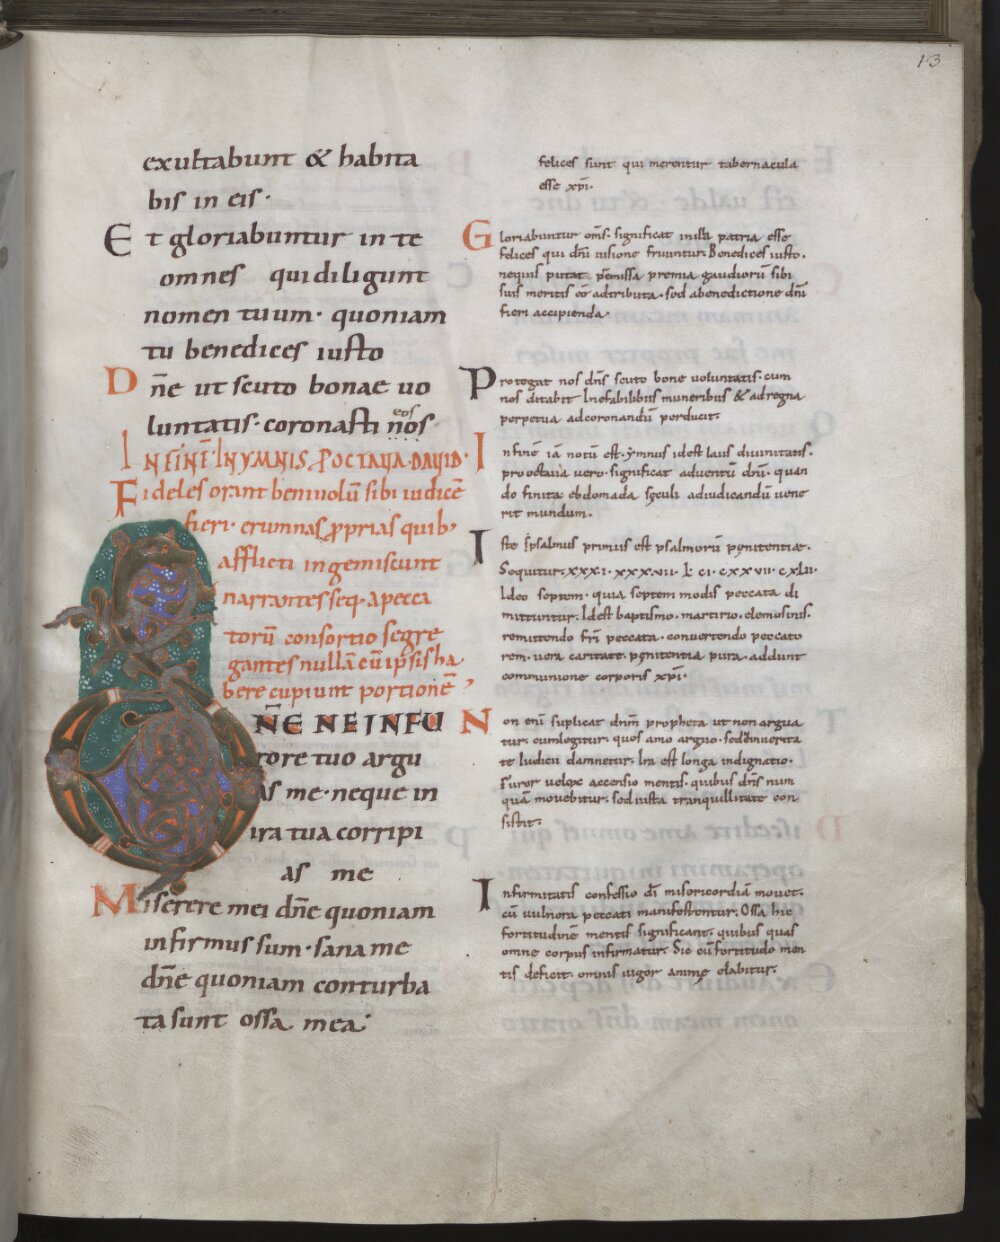 13
exultabunt & habita
bis in eis·
Et gloriabuntur in te
omnes qui diligunt
nomen tuum· quoniam
tu benedices iusto
Dn̄e ut scuto bonae uo
luntatis· coronasti nos eos·
IN FINĒ IN YMNIS, P OCTAVA·DAVID·
Fideles orant beniuolū sibi iudicē
fieri· erumnas pprias quib,
afflicti ingemiscunt
narrantes seq· a pecca
torū consortio segre
gantes nullā cū ipsis ha
bere cupiunt portionē,
DN̄E NE IN FU
rore tuo argu
as me· neque in
ira tua corripi
as me
Miserere mei dn̄e quoniam
infirmus sum· sana me
dn̄e quoniam conturba
ta sunt ossa mea·
felices sunt qui merentur tabernacula
esse xpi·
Gloriabuntur om̄s· significat in illa patria esse
felices qui dn̄i uisione fruuntur. Benedices iusto·
nequis putat p̄missa premia gaudiorū sibi
suis meritis eē adtributa· sed a benedictione dn̄i
fieri accipienda·
Protegat nos dn̄s scuto bone uoluntatis· cum
nos ditabit Inefabilibus muneribus & ad regna
perpetua ad coronandū perducit·
In finē iā notū est· ymnus id est laus diuinitatis·
pro octaua uero· significat aduentū dn̄i· quan
do finita ebdomada sęculi adiudicandū uene
rit mundum·
Iste psalmus primus est psalmorū pęnitentiae·
Sequitur· xxxi· xxxvii· l· ci· cxxvii· cxlii·
Ideo septem· quia septem modis peccata di
mittuntur· Id est baptismo· martirio· elemosinis·
remittendo fr̄i peccata· conuertendo peccato
rem· uera caritate· pęnitentia pura· addunt
communione corporis xpi·
Non enī suplicat dn̄m propheta ut non argua
tur· cum legitur· quos amo arguo· sed ne in uerita
te Iudicii damnetur. Ira est longa indignatio·
Furor uelox accensio mentis· quibus dn̄s num
quā mouebitur· sed iusta tranquillitate con
sistit·
Infirmitatis confessio dī misericordiā mouet·
cū uulnera peccati manifestentur. Ossa hic
fortitudinē mentis significant· quibus quasi
omne corpus infirmatur. Sic cū fortitudo men
tis deficit· omnis uigor animę elabitur·